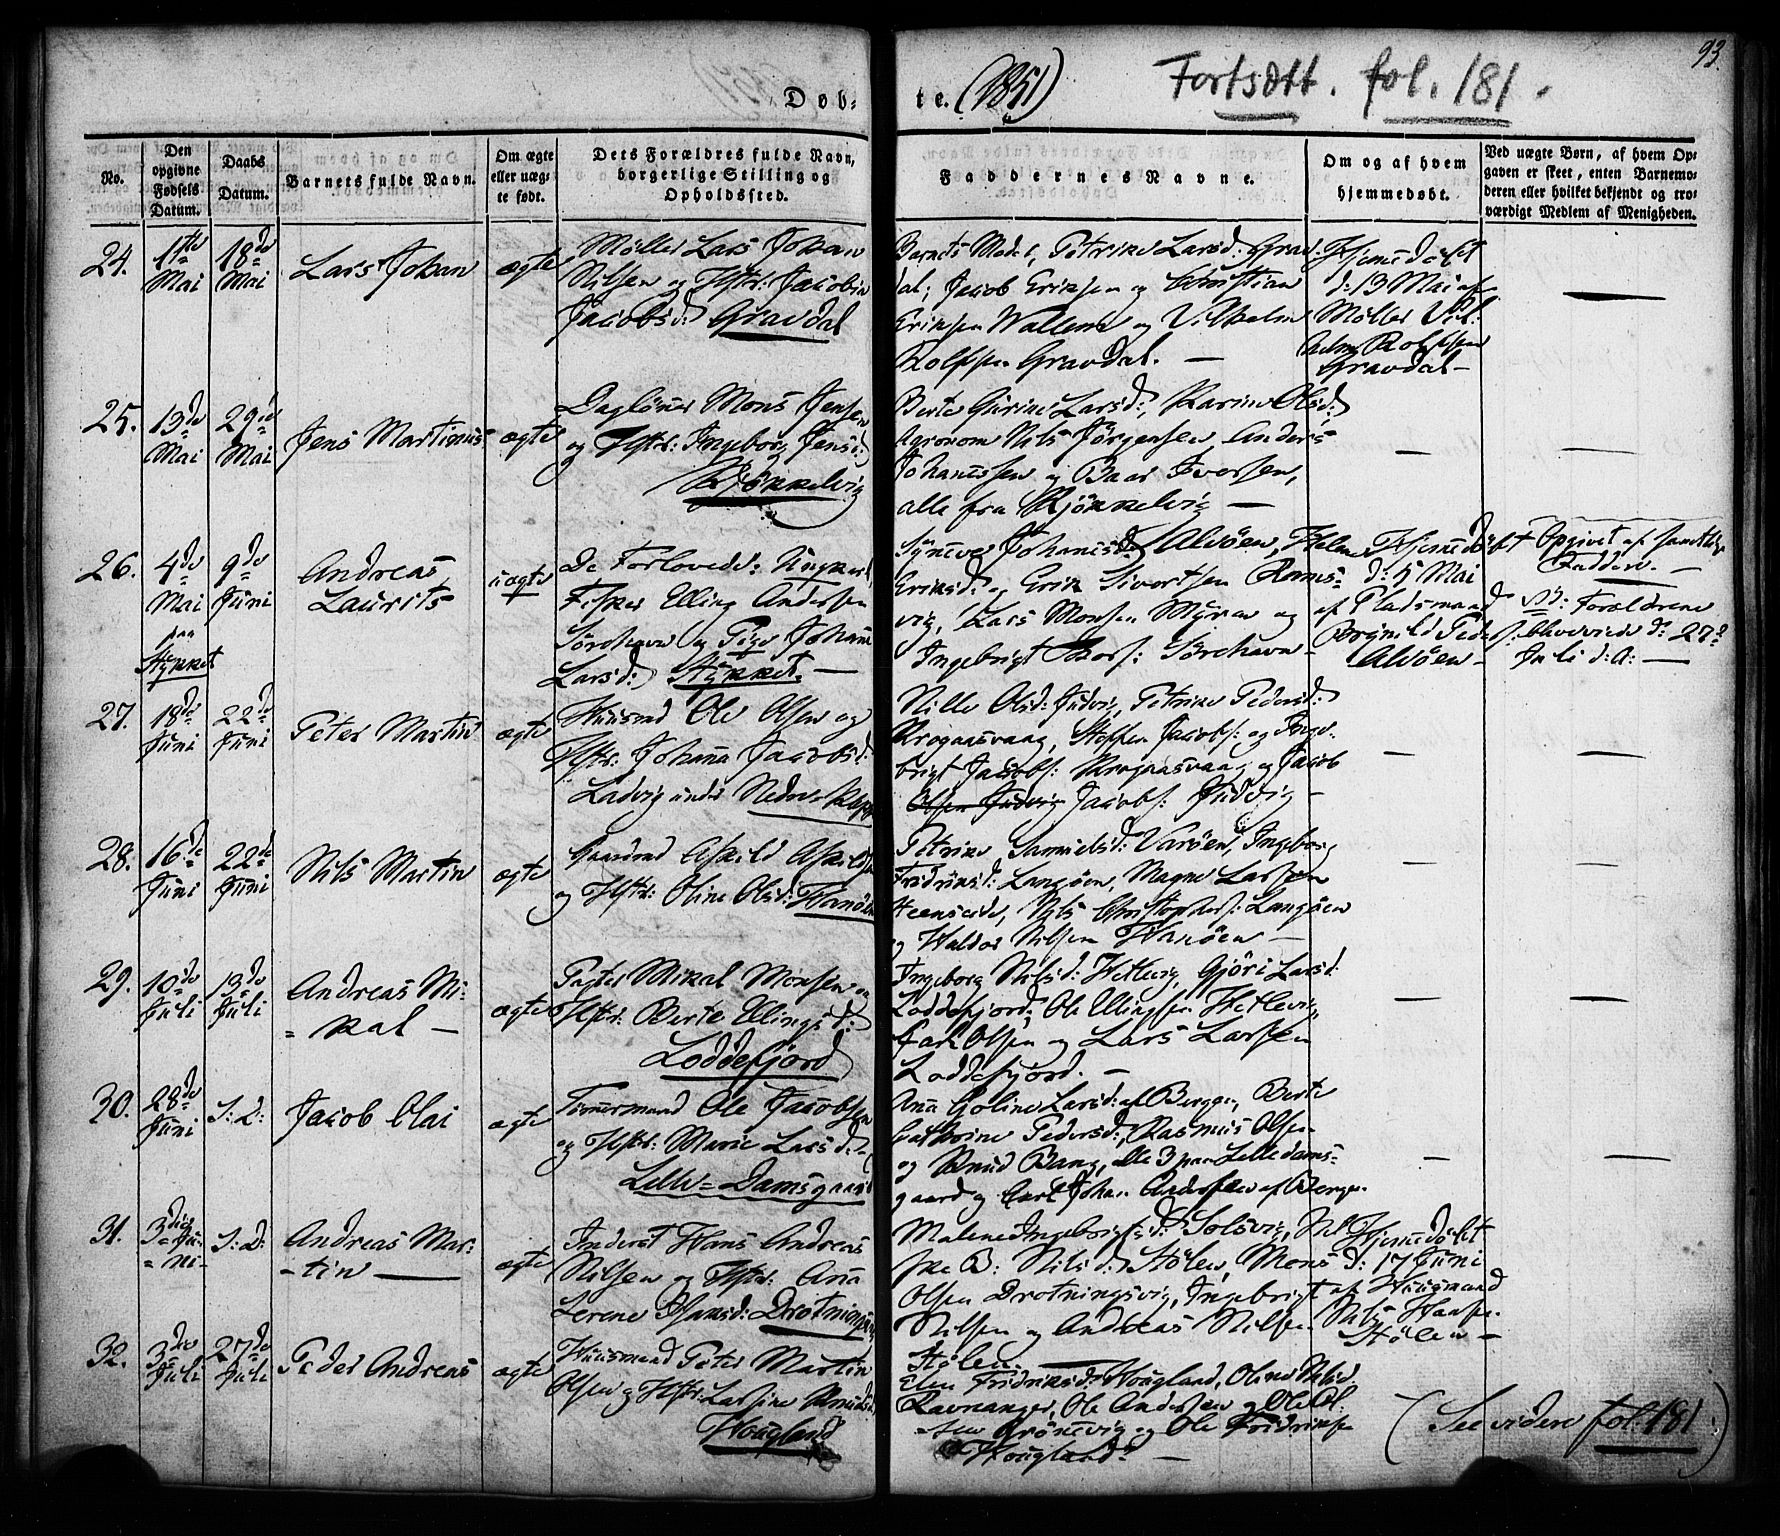 93.
Døb-
te. (1851)
Fortsætt. fol. 181.
No.
Den opgivne Fødsels Datum.
Daabs Datum.
Barnets fulde Navn.
Om ægte eller uægte født.
Dets Forældres fulde Navn, borgerlige Stilling og Opholdssted.
Faddernes Navne.
Om og af hvem hjemmedøbt.
Ved uægte Børn, af hvem Opgaven er skeet, enten Barnemoderen eller hvilket bekjendt og troværdigt Medlem af Menigheden.
24.
11te Mai
18de Mai
Lars Johan
ægte
Møller Lars Johan
Nilsen og Hstr: Jacobine
Jacobsd: Gravdal
Barnets Moder, Petrine Larsd: Grav-
dal; Jacob Eriksen og Christian
Eriksen og Vilhelm
Rolfsen Gravdal. —
Hjemmedøbt
d: 13 Mai af
Møller Vil-
helm Rolfsen
Gravdal —
25.
13de Mai
29de Mai
Jens Martinus
ægte
Daglønner Mons Jensen
og Hstr: Ingeborg Jensd:
Kjøkkelvig
Berte Gurine Larsd:, Karine Olsd:
Agronom Nils Jørgensen, Anders
Johannssen og Baar Iversen,
alle fra Kjøkkelvig —
26.
4de Mai
paa Stykket
9de Juni
Andreas
Laurits
uægte
De Forlovede: Ungkarl,
Fisker Elling Andersen
Sørehavn og Pige Johanna
Larsd: Stykket. —
Synneve Johannesd: Alvøen, Helene
Eriksd: og Erik Sivertsen Rams-
vig, Lars Monsen Myren og
Ingebrigt Sørehavn —
Hjemmedøbt
d: 5 Mai
af Pladsmand
Brynild Peders:
Alvøen —
Opgivet af samtlige
Faddere. —
Forældrene
bleve viede d: 27de
Juli d: A: —
27.
18de Juni
22de Juni
Peter Martin
ægte
Huusmd Ole Olsen og
Hstr: Johanna Jacobsd:
Ladvig under Nedre
Nille Olsd: Judvig, Petrine Pedersd:
Krogaasvaag, Steffen Jacobs: og Inge-
brigt Jacobs: Krogaasvaag og Jacob
Olsen Judvig Jacobs: Judvig —
28.
16de Juni
22de Juni
Nils Martin
ægte
Gaardmd Askild Askilds:
og Hstr: Oline Olsd: Hanøen
Petrine Samuelsd: Varøen, Ingeborg
Fridriksd: Langøen, Magne Larssen
Nils Christophers: Langøen
og Haldor Nilsen Hanøen —
29.
10de Juli
13de Juli
Andreas Mi-
kal —
ægte
Pagter Mikal Monsen og
Hstr: Berte Ellingsd:
Loddefjord
Ingeborg Nilsd: Hetlevig, Gjøri Larsd:
Loddefjord, Ole Ellingsen Hetlevig,
Carl Olsen og Lars Larssen
Loddefjord. —
30.
28de Juni
S: D:
Jacob Olai
ægte
Tømmermand Ole Jacobsen
og Hstr: Marie Larsd:
Lille-Damsgaard
Anna Goline Larsd: af Bergen, Berte
Cathrine Pedersd:, Rasmus Olsen
og Knud Bang, alle 3 paa Lilledams-
gaard og Carl Johan Andersen af Bergen.
31.
3die Juni
S: D:
Andreas Mar-
tin —
ægte
Inderst Hans Andreas
Nilsen og Hstr: Anna
Serene Hansd: Drotningsvig
Malene Ingebrigtsd: Solsvig,
B: Nilsd: Stølen, Mons
Olsen Drotningsvig, Ingebrigt
Nilsen og Andreas Nilsen
Stølen. —
Hjemmedøbt
d: 17 Juni
af Huusmand
Nils Hansen
Stølen —
32.
3die Juli
27de Juli
Peder Andreas
ægte
Huusmand Peter Martin
Olsen og Hstr: Larsine Knudsd:
Hougland
Elen Fridriksd: Hougland, Oline Nilsd:
Ravnanger, Ole Andersen og Ole Ol-
sen Grønnevig og Ole Fridriksen
Hougland. —
(See videre fol: 181.)